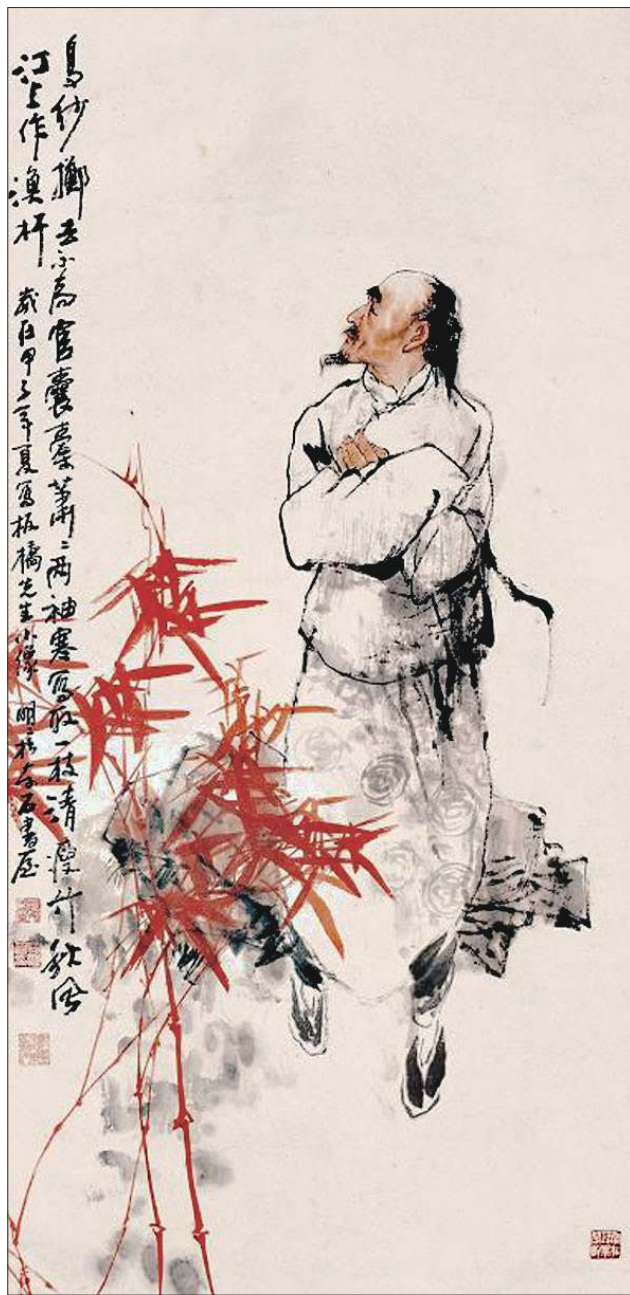 烏紗擲去不為官囊橐蕭〻两袖寒寫取一枝清瘦竹秋風
江上作漁杆 歲在甲子年夏寫板橋先生小像 明〻於石書屋